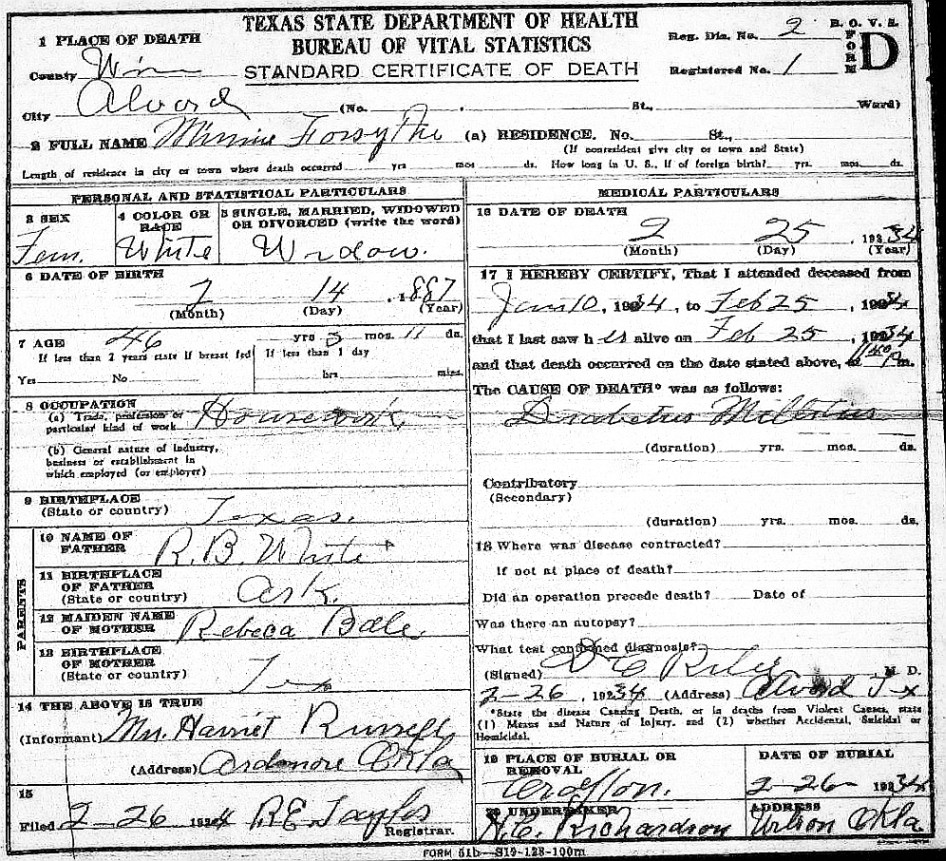 TEXAS STATE DEPARTMENT OF HEALTH
BUREAU OF VITAL STATISTICS
STANDARD CERTIFICATE OF DEATH
Reg. Dis. No. 2
Registered No. 1
B. O. V. S.
FORM D
1 PLACE OF DEATH
County
City Alvord (No. , St., Ward)
2 FULL NAME Minnie Forsythe (a) RESIDENCE. No. St.,
(If nonresident give city or town and State)
Length of residence in city or town where death occurred yrs mos ds. How long in U. S., if of foreign birth? yrs. mos. ds.
PERSONAL AND STATISTICAL PARTICULARS
3 SEX
Fem.
4 COLOR OR RACE
White
5 SINGLE, MARRIED, WIDOWED
OR DIVORCED (write the word)
Widow.
6 DATE OF BIRTH
14, 1887
(Month) (Day) (Year)
7 AGE 46 yrs mos. 11 ds.
If less than 2 years state if breast fed
If less than 1 day
Yes No hrs min.
8 OCCUPATION
(a) Trade, profession or
particular kind of work Housework
(b) General nature of industry,
business or establishment in
which employed (or employer)
9 BIRTHPLACE
(State or country) Texas.
PARENTS
10 NAME OF
FATHER R. B. White
11 BIRTHPLACE
OF FATHER
(State or country) Ark.
12 MAIDEN NAME
OF MOTHER Rebeca
13 BIRTHPLACE
OF MOTHER
(State or country) Tex
14 THE ABOVE IS TRUE
(Informant) Mrs. Harriet Russell
(Address) Ardmore Okla
15
Filed 2-26 1934 R E Taylor
Registrar.
MEDICAL PARTICULARS
16 DATE OF DEATH
2 25, 1934
(Month) (Day) (Year)
17 I HEREBY CERTIFY, That I attended deceased from
Jan 10, 1934, to Feb 25, 1934
that I last saw h es alive on Feb 25, 1934
and that death occurred on the date stated above, at P m.
The CAUSE OF DEATH* was as follows:
Diabetus
(duration) yrs. mos. ds.
Contributory
(Secondary)
(duration) yrs. mos. ds.
18 Where was disease contracted?
If not at place of death?
Did an operation precede death? Date of
Was there an autopsy?
What test confirmed diagnosis?
(Signed) Riley M. D.
2-26, 1934 (Address) Alvord Tex
*State the disease Causing Death, or in deaths from Violent Causes, state
(1) Means and Nature of Injury, and (2) whether Accidental, Suicidal or
Homicidal.
19 PLACE OF BURIAL OR
REMOVAL
Crafton.
DATE OF BURIAL
2-26- 1934
20 UNDERTAKER
Richardson
ADDRESS
Wilson Okla
FORM 51b—S19-128-100m